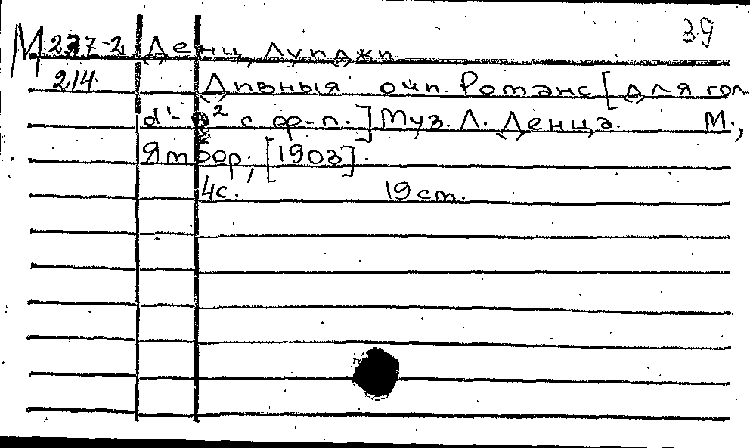 39
М 237-2 Денц, Луиджи
214. Дивныя очи. Романс [для гол.
d¹-g² с ф-п.] Муз. Л. Денца. М.,
Ямбор, [1903].
4с. 19 ст.